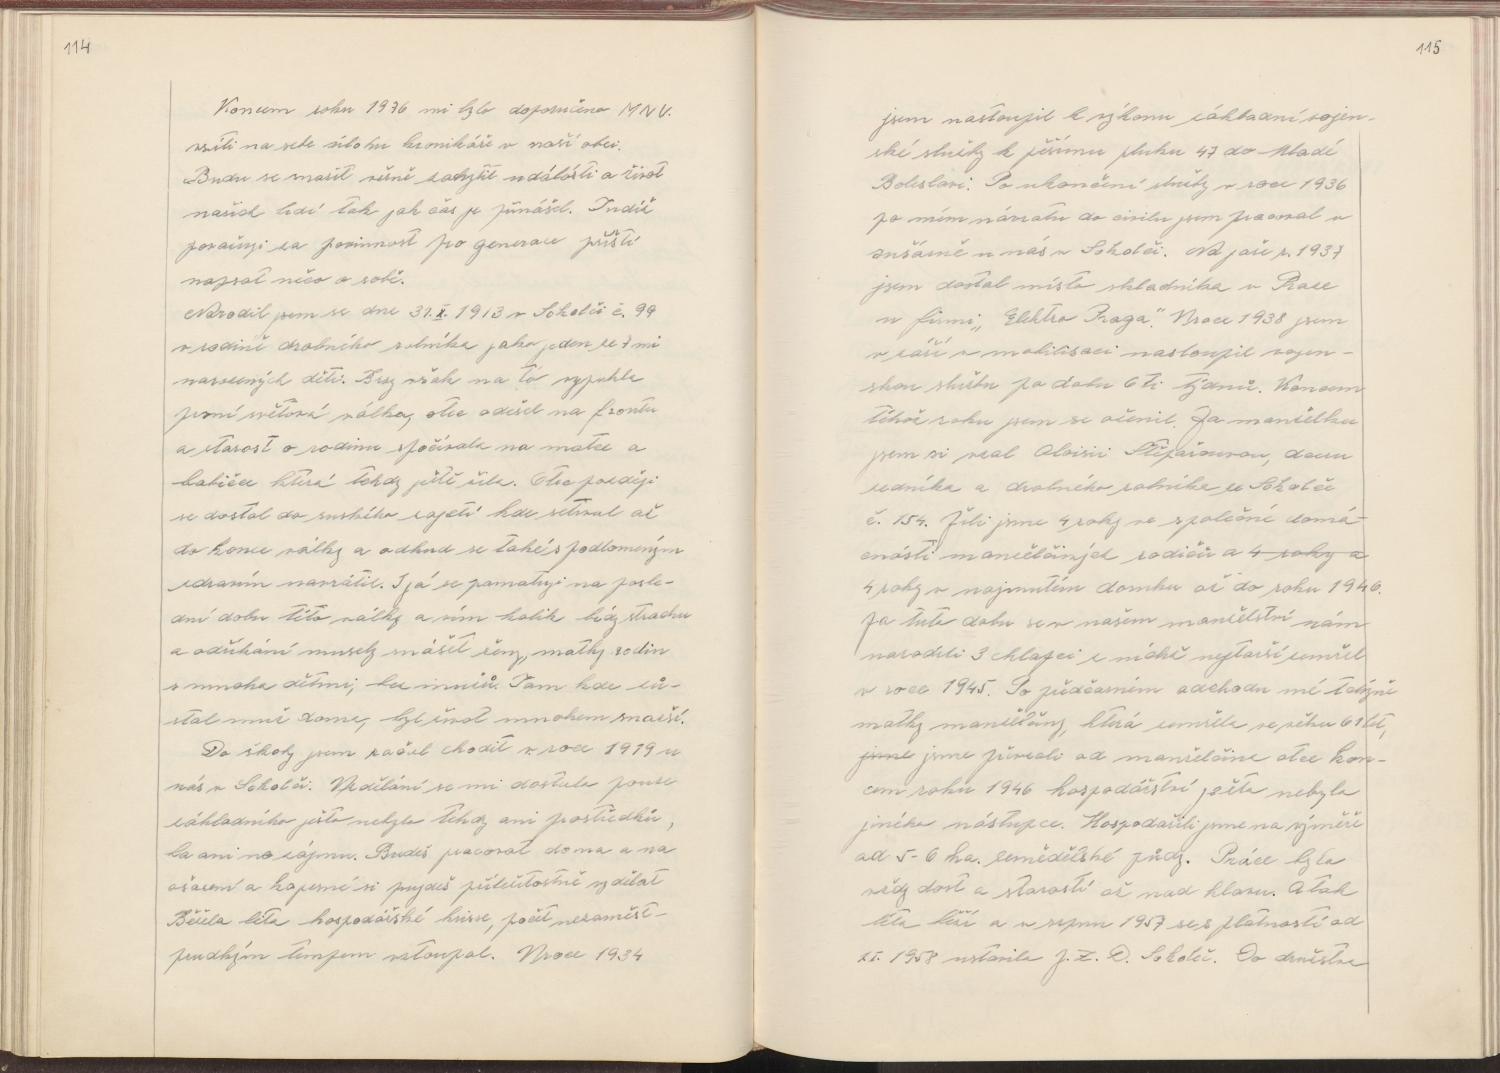 114
Koncem roku 1976 mi bylo doporučeno MNV.
vzíti na sebe úlohu kronikáře v naší obci.
Budu se snažit věrně zachytit události a život
našich lidí tak jak čas je přinášel. Tudíž
považuji za povinnost pro generace příští
napsat něco o sobě.
Narodil jsem se dne 31.X. 1913 v Sokolči č. 99
v rodině drobného rolníka jako jeden ze 7 mi
narozených dětí. Brzy však na to vypukla
první světová válka, otec odešel na frontu
a starost o rodinu spočívala na matce a
babičce která tehdy ještě žila. Otec později
se dostal do ruského zajetí kde setrval až
do konce války a odkud se také s podlomeným
zdravím navrátil. I já se pamatuji na posle-
dní dobu této války a vím kolik bídy strachu
a odříkání musely snášet ženy, matky rodin
s mnoha dětmi, bez mužů. Tam kde zů-
stal muž doma, byl život mnohem snazší.
Do školy jsem začal chodit v roce 1919 u
nás v Sokolči. Vzdělání se mi dostalo pouze
základního ježto nebylo tehdy ani prostředků,
ba ani no zájmu. Budeš pracovat doma a na
ošacení a kapesné si pujdeš příležitostně vydělat
Běžela léta hospodářské krise, počet nezaměst-
prudkým tempem vstoupal. V roce 1934
115
jsem nastoupil k výkonu základní vojen-
ské služby k pěšímu pluku 47 do Mladé
Boleslavi. Po ukončení služby v roce 1936
po mém návratu do civilu jsem pracoval v
sušárně u nás v Sokolči. Na jaře r. 1937
jsem dostal místo skladníka v Praze
u firmi „Elektro Praga". V roce 1938 jsem
v září v mobilisaci nastoupil vojen-
skou službu po dobu 6 ti týdnů. Koncem
téhož roku jsem se oženil. Za manželku
jsem si vzal Aloisii Štěpařovou, dceru
zedníka a drobného rolníka ze Sokolče
č. 154. Žili jsme 4 roky ve společné domá-
cnosti manželčiných rodičů a 4 roky a
4 roky v najmutém domku až do roku 1946.
Za tuto dobu se v našem manželství nám
narodili 3 chlapci z nichž nejstarší zemřel
v roce 1945. Po předčasném odchodu mé tchýně
matky manželčiny, která zemřela ve věku 61 let,
jsme jsme převzali od manželčina otce kon-
cem roku 1946 hospodářství ježto nebylo
jiného nástupce. Hospodařili jsme na výměře
od 5-6 ha. zemědělské půdy. Práce byla
vždy dost a starostí až nad hlavu. A tak
léta běží a v srpnu 1957 se s platností od
1.1. 1958 ustavila J.Z.D. Sokoleč. Do družstva